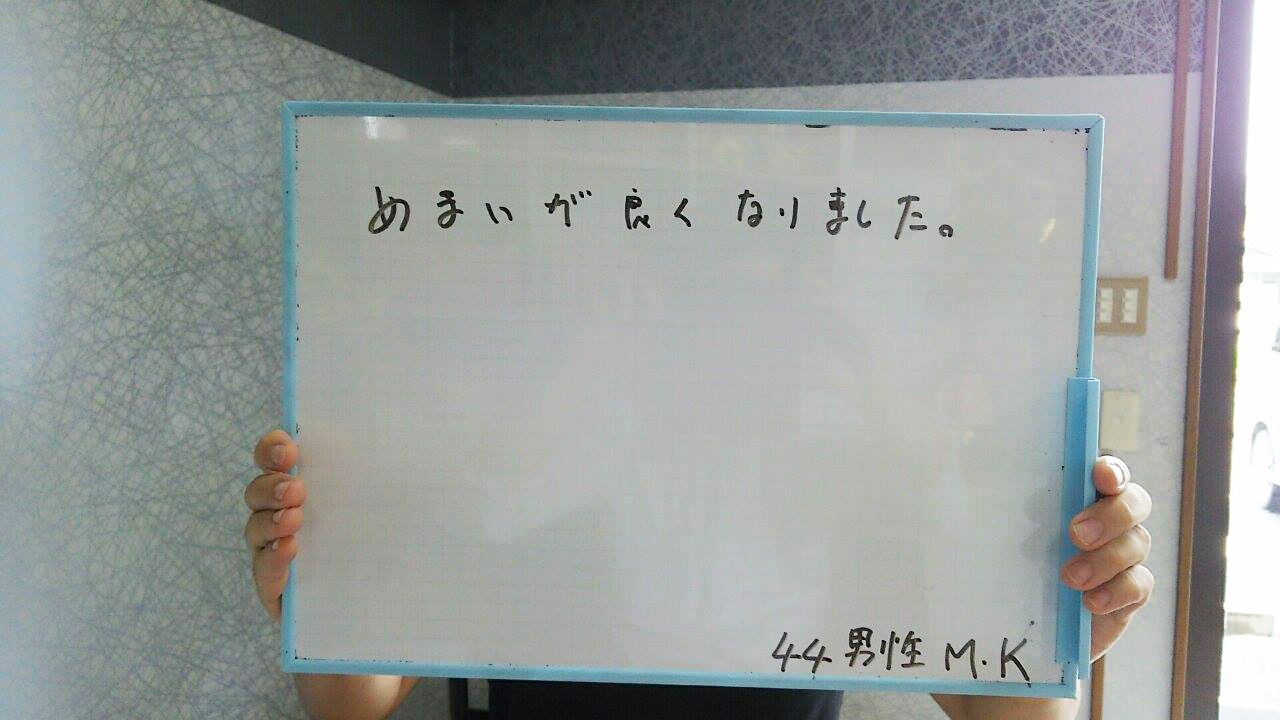 めまいが良くなりました。
44男性 M.K